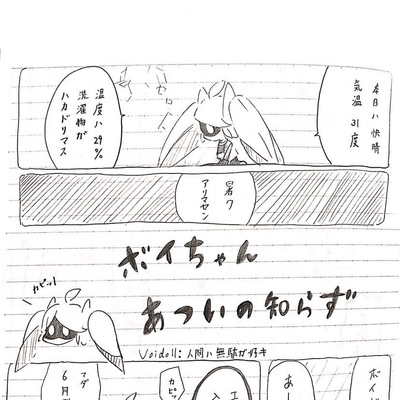 本日ハ快晴
気温 31度
ピロリン
湿度ハ29%
洗濯物が
ハカドリマス
暑ク
アリマセン
ボイちゃん
あついの知らず
カピッ!
Voidoll:人間ハ無駄が好キ
ボイド
あし
エ
入
カピッ
マダ
6月